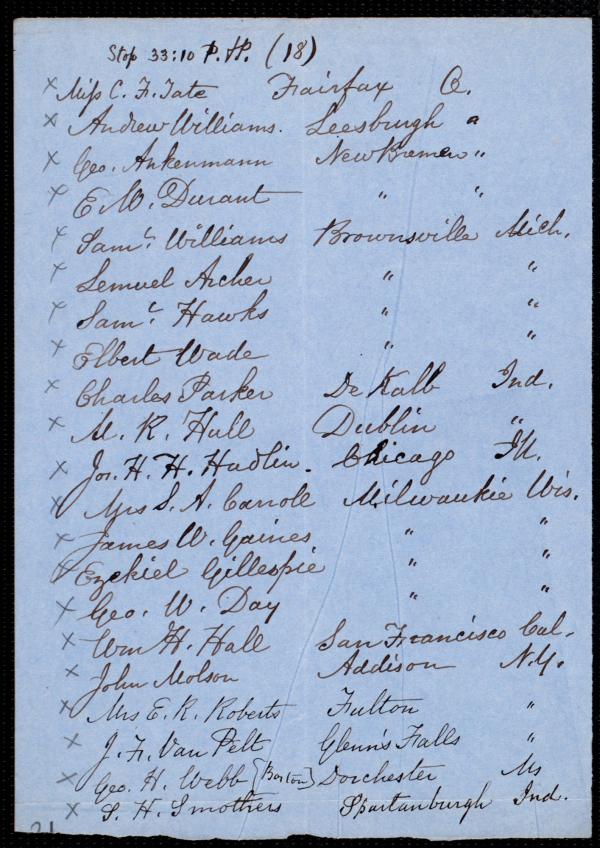 Stop 33:10 P.H. (18)
x Miss C. F. Tate Fairfax O.
x Andrew Williams. Leesburgh "
x Geo. Ankenmann New Bremen "
x E. W. Durant " "
x Saml. Williams Brownsville Mich.
x Lemuel Archer " "
x Saml. Hawks " "
x Elbert Wade " "
x Charles Parker De Kalb Ind.
x M. R. Hull Dublin "
x Jos. H. H. Hadlin. Chicago Ill.
x Mrs S. A. Carroll Milwaukie Wis.
x James W. Gaines " "
x Ezekiel Gillespie " "
x Geo. W. Day " "
x Wm H. Hall San Francisco Cal.
x John Molson Addison N.Y.
x Mrs E. K. Roberts Fulton "
x J. F. Van Pelt Glenn's Falls "
x Geo. H. Webb [Boston] Dorchester Ms
x S. H. Smothers Spartanburgh Ind.
21